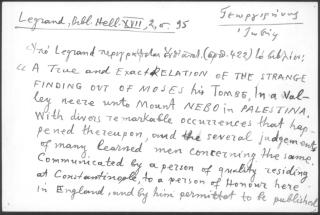 Legrand, Bibl. Hell. XVII, 2, σ. 95
Γεωργειρήνης
Ἰωσήφ
Ὑπὸ Legrand περιγράφεται (ἀριθ. 422) τὸ βιβλίον:
« A True and Exact RELATION OF THE STRANGE
FINDING OUT OF MOSES his TOMBE, In a Val-
ley neere unto Mount NEBO in PALESTINA.
With divers remarkable occurrences that hap-
pened thereupon, and the several judgements
of many learned men concerning the same.
Communicated by a person of quality residing
at Constantinople, to a person of Honour here
in England, and by him permitted to be published,